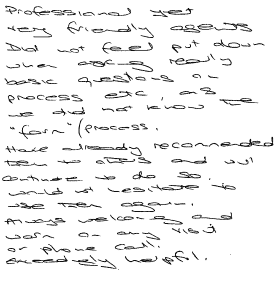 Professional yet
very friendly agents
Did not feel put down
when asking really
basic questions on
process etc, as
we did not know the
"form"/process.
Have already recommended
them to others and will
continue to do so.
would not hesitate to
use them again.
Always welcoming and
warm on any visit
or phone call.
exceedingly helpful.